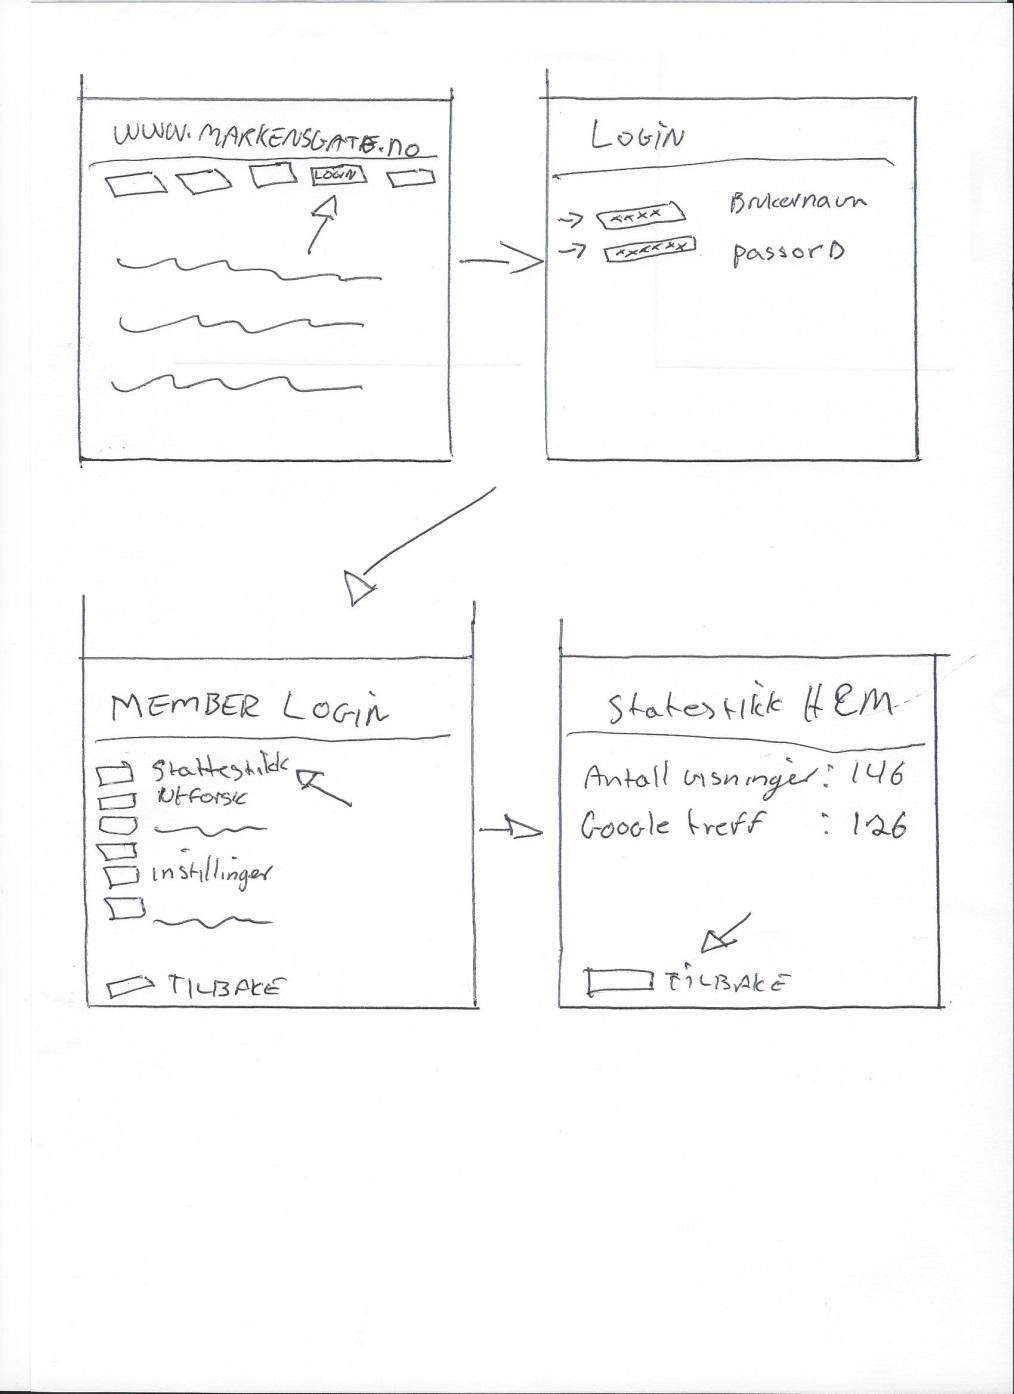 WWW.MARKENSGATE.no
LOGIN
LOGiN
xxxx Brukernavn
xxxxxx passorD
MEMBER LOGiN
Stattestikk
instillinger
TILBAKE
Statestikk H&M
Antall visninger: 146
Google treff : 126
TiLBAKE